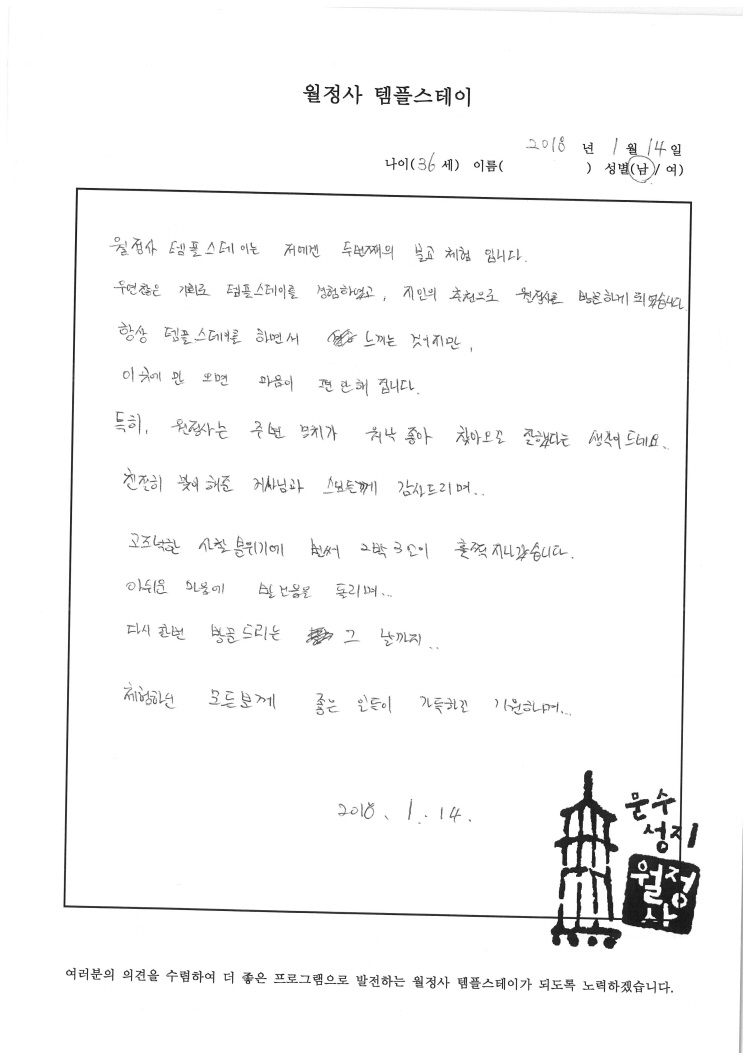 월정사 템플스테이
2018 년 1 월 14 일
나이(36 세) 이름( ) 성별(남 / 여)
월정사 템플스테이는 저에겐 두번째의 불교 체험 입니다.
우연찮은 기회로 템플스테이를 경험하였고, 지인의 추천으로 월정사를 방문하게 되었습니다
항상 템플스테이를 하면서 느끼는 것이지만,
이곳에만 오면 마음이 편안해 집니다.
특히, 월정사는 주변 경치가 워낙 좋아 찾아오고 잘했다는 생각이 드네요..
친절히 맞이 해준 거사님과 스님들께 감사드리며..
고즈넉한 사찰 분위기에 벌써 2박 3일이 훌쩍 지나갔습니다.
아쉬운 마음에 발걸음을 돌리며...
다시 한번 방문드리는 그 날까지..
체험하신 모든분께 좋은 일들이 가득하길 기원하며...
2018. 1. 14.
문수
성지
월정
사
여러분의 의견을 수렴하여 더 좋은 프로그램으로 발전하는 월정사 템플스테이가 되도록 노력하겠습니다.